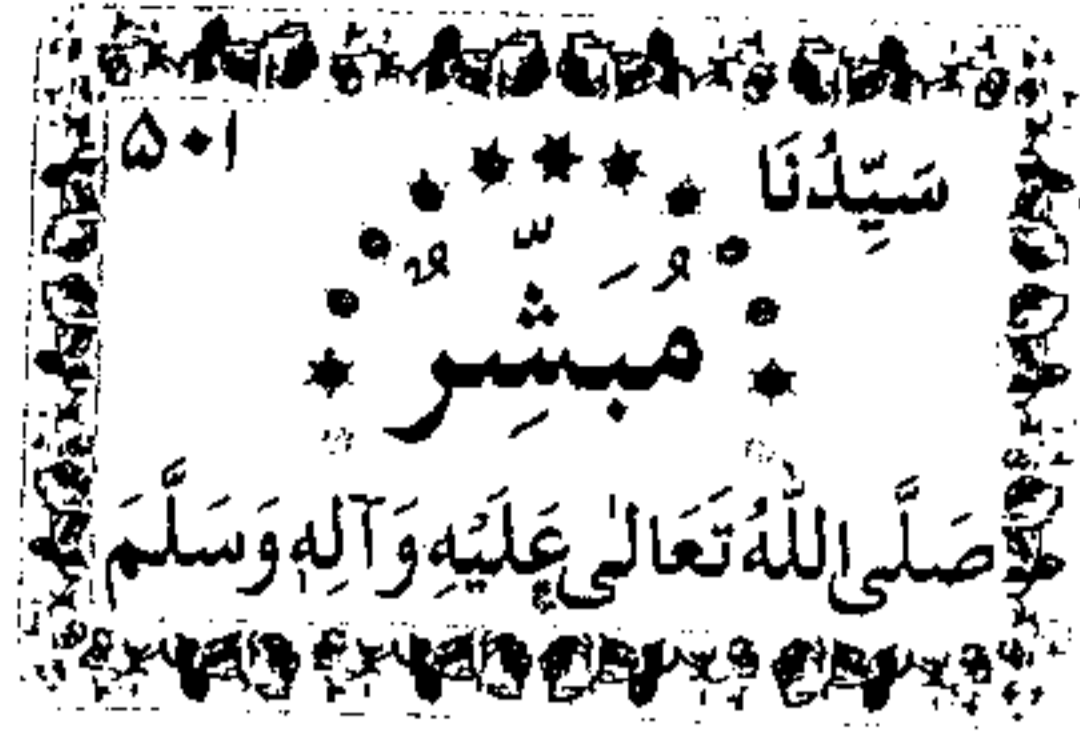 سَيِّدُنَا ۵۰۱
مُبَشِّرٌ
صَلَّى اللّٰهُ تَعَالٰى عَلَيْهِ وَآلِهٖ وَسَلَّمَ